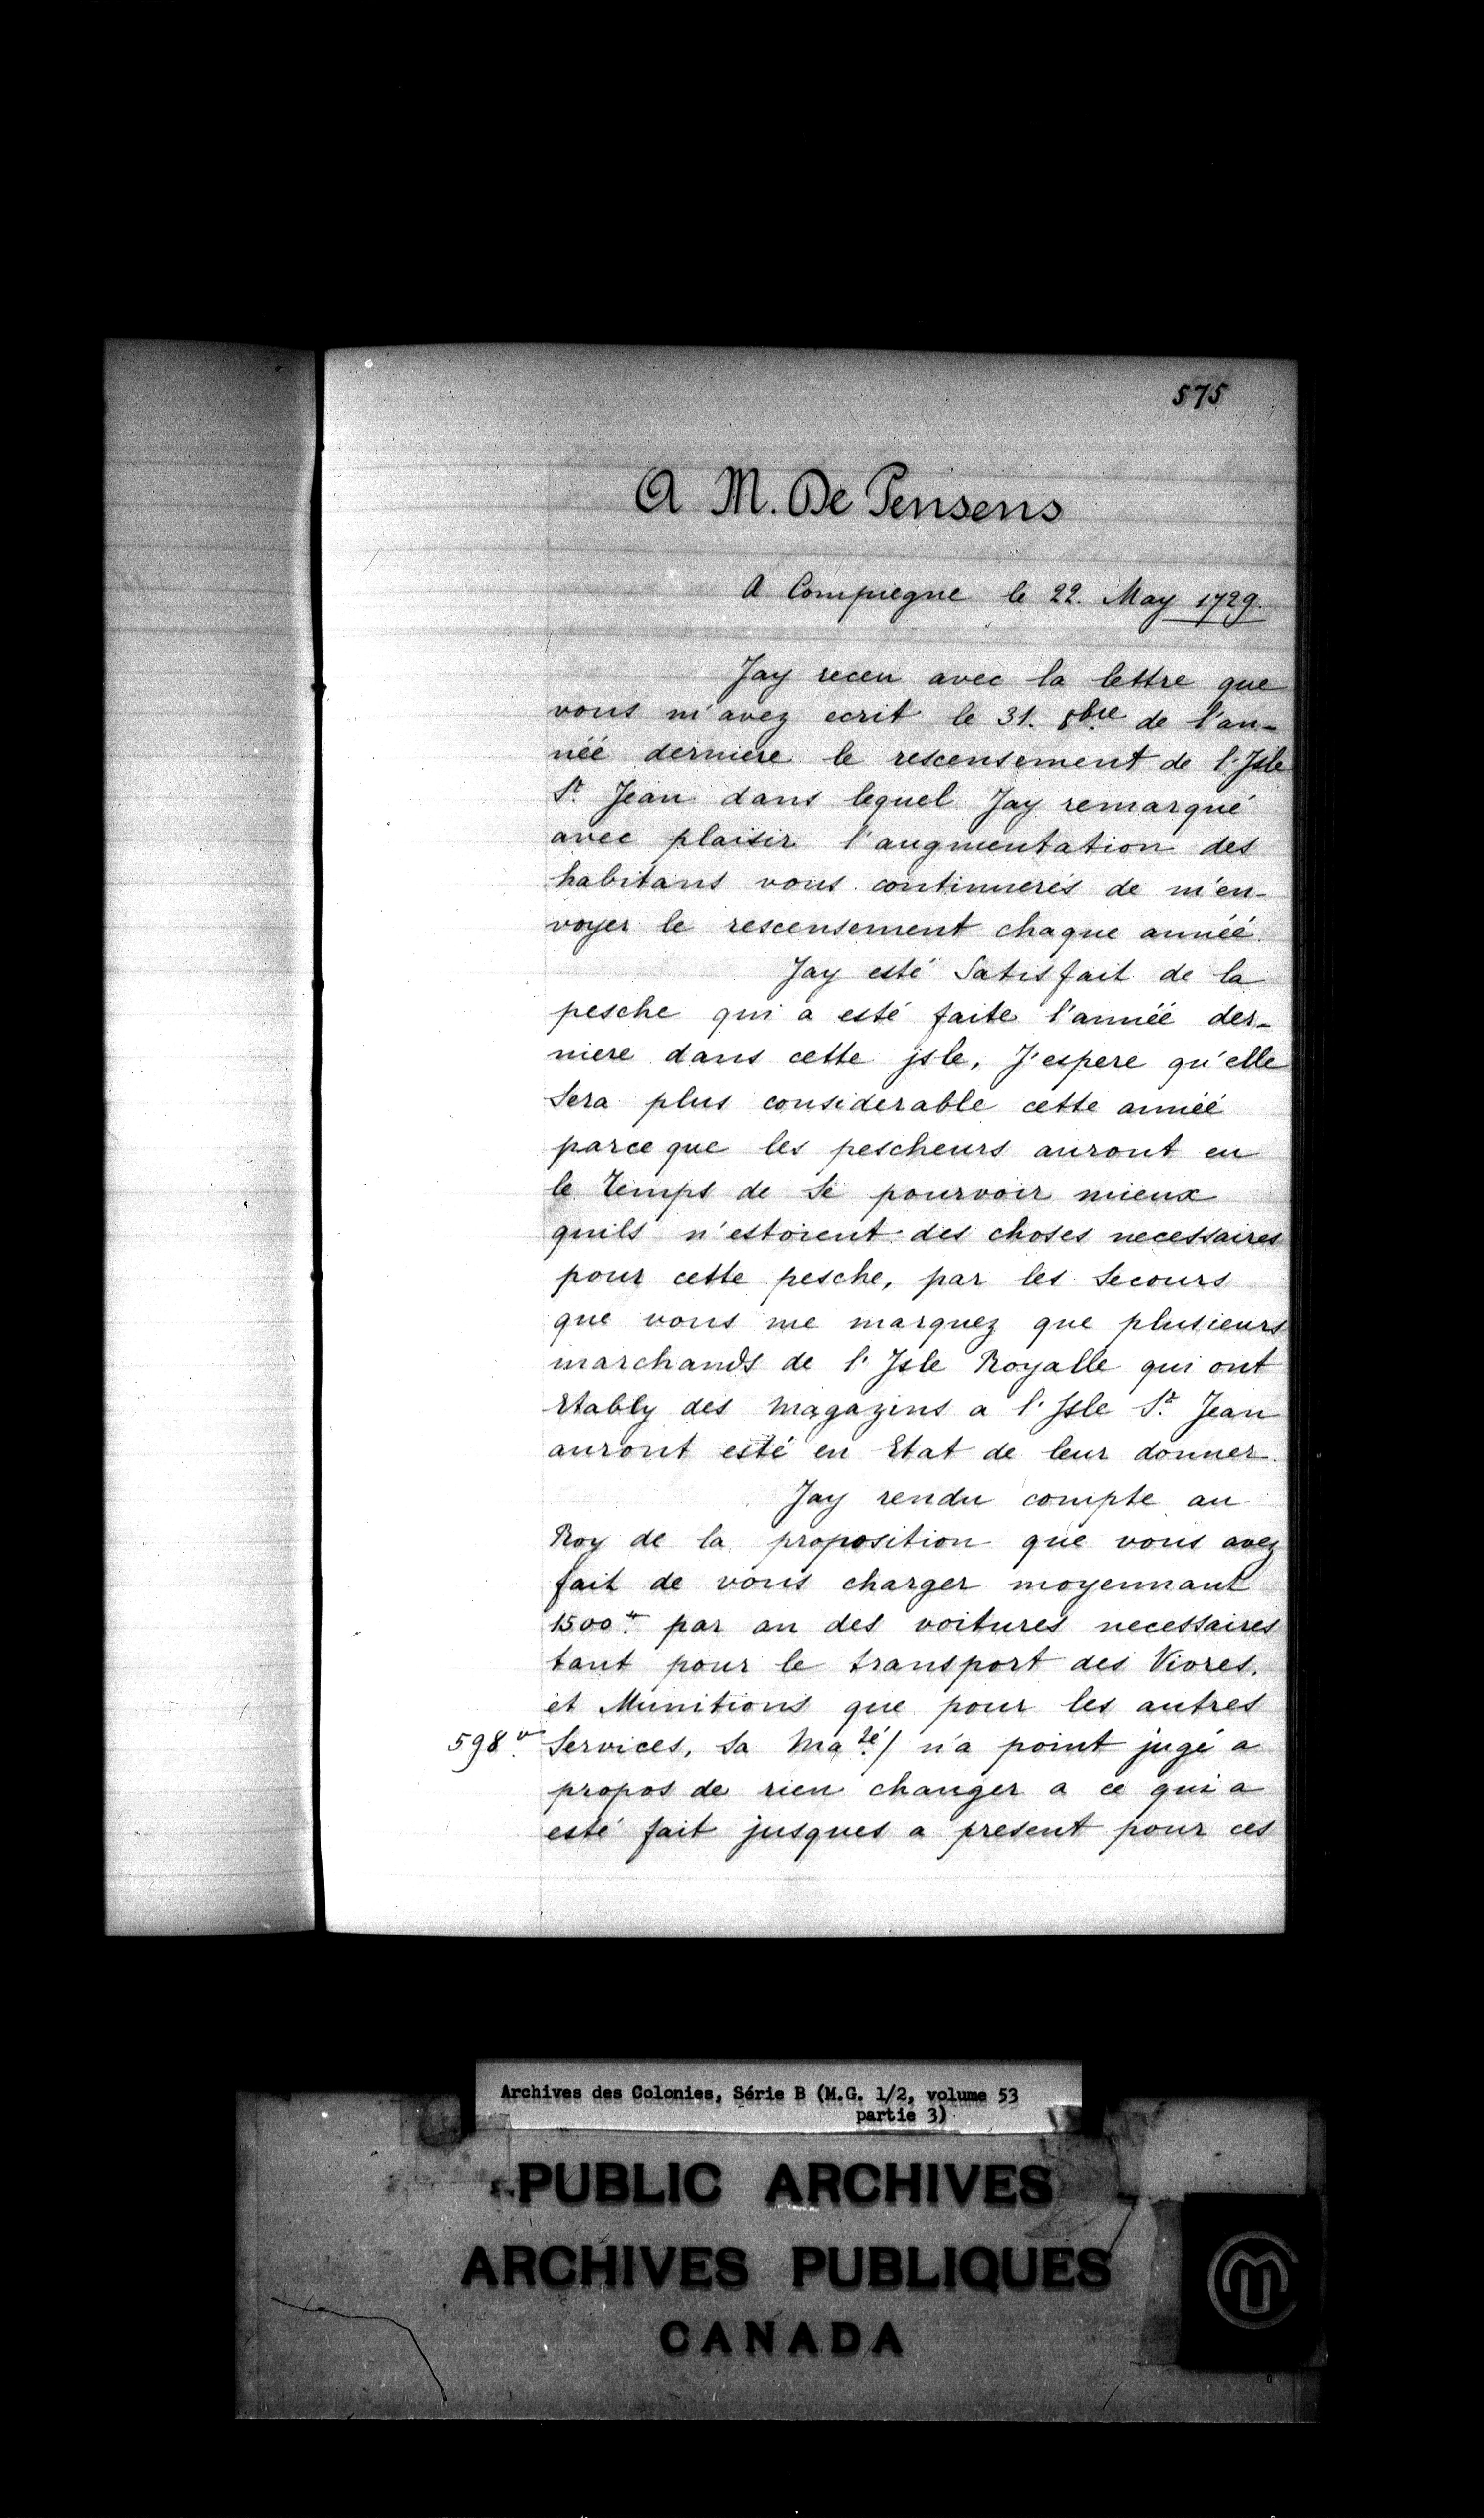 575
A M. De Pensens
A Compiegne le 22. May 1729.
Jay receu avec la lettre que
vous m'avez ecrit le 31. 8bre de l'an-
néé derniere le rescensement de l'Isle
St. Jean dans lequel Jay remarqué
avec plaisir l'augmentation des
habitans vous continuerés de m'en-
voyer le rescensement chaque annéé.
Jay esté Satisfait de la
pesche qui a esté faite l'annéé der-
niere dans cette jsle, J'espere qu'elle
Sera plus considerable cette annéé
parce que les pescheurs auront eu
le temps de se pourvoir mieux
quils n'estoient des choses necessaires
pour cette pesche, par les Secours
que vous me marquez que plusieurs
marchands de l'Isle Royalle qui ont
Etably des magazins a l'Isle St. Jean
auront esté en Etat de leur donner.
Jay rendu compte au
Roy de la proposition que vous avez
fait de vous charger moyennant
1500.ᵗᵗ par an des voitures necessaires
tant pour le transport des Vivres,
et Munitions que pour les autres
598.v Services, Sa Ma.té/ n'a point jugé a
propos de rien changer a ce qui a
esté fait jusques a present pour ces
Archives des Colonies, Série B (M.G. 1/2, volume 53
partie 3)
PUBLIC ARCHIVES
ARCHIVES PUBLIQUES
CANADA